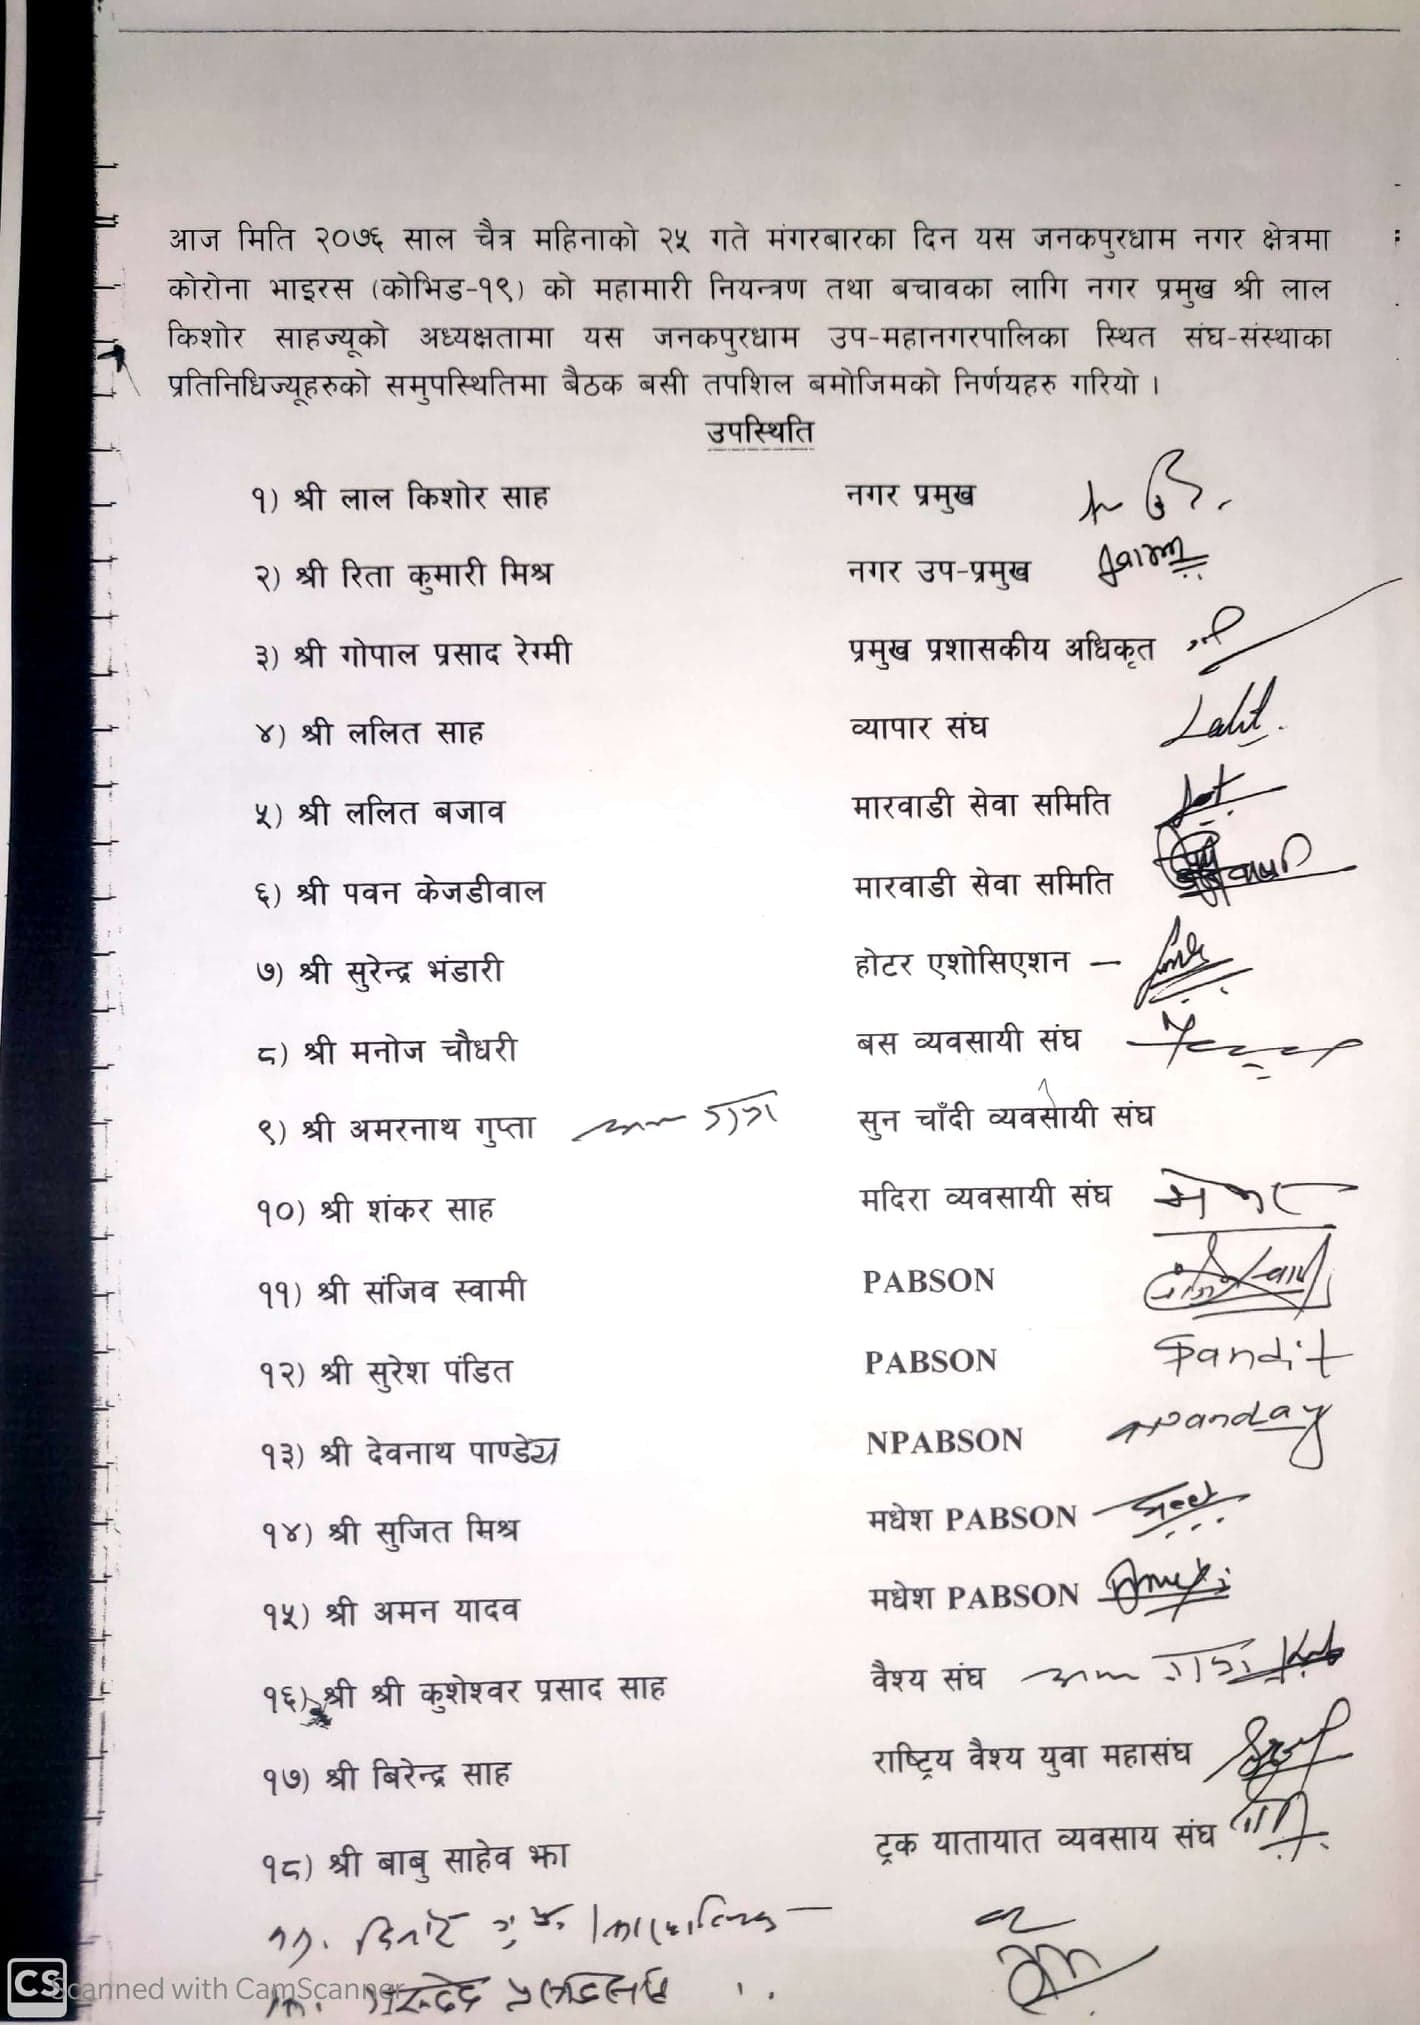 आज मिति २०७६ साल चैत्र महिनाको २५ गते मंगरबारका दिन यस जनकपुरधाम नगर क्षेत्रमा
कोरोना भाइरस (कोभिड-१९) को महामारी नियन्त्रण तथा बचावका लागि नगर प्रमुख श्री लाल
किशोर साहज्यूको अध्यक्षतामा यस जनकपुरधाम उप-महानगरपालिका स्थित संघ-संस्थाका
प्रतिनिधिज्यूहरुको समुपस्थितिमा बैठक बसी तपशिल बमोजिमको निर्णयहरु गरियो ।
उपस्थिति
१) श्री लाल किशोर साह नगर प्रमुख
२) श्री रिता कुमारी मिश्र नगर उप-प्रमुख
३) श्री गोपाल प्रसाद रेग्मी प्रमुख प्रशासकीय अधिकृत
४) श्री ललित साह व्यापार संघ Lalit
५) श्री ललित बजाव मारवाडी सेवा समिति
६) श्री पवन केजडीवाल मारवाडी सेवा समिति
७) श्री सुरेन्द्र भंडारी होटर एशोसिएशन –
८) श्री मनोज चौधरी बस व्यवसायी संघ
९) श्री अमरनाथ गुप्ता सुन चाँदी व्यवसायी संघ
१०) श्री शंकर साह मदिरा व्यवसायी संघ
११) श्री संजिव स्वामी PABSON
१२) श्री सुरेश पंडित PABSON Pandit
१३) श्री देवनाथ पाण्डेय NPABSON Panday
१४) श्री सुजित मिश्र मधेश PABSON
१५) श्री अमन यादव मधेश PABSON
१६) श्री श्री कुशेश्वर प्रसाद साह वैश्य संघ
१७) श्री बिरेन्द्र साह राष्ट्रिय वैश्य युवा महासंघ
१८) श्री बाबु साहेव झा ट्रक यातायात व्यवसाय संघ
CS Scanned with CamScanner